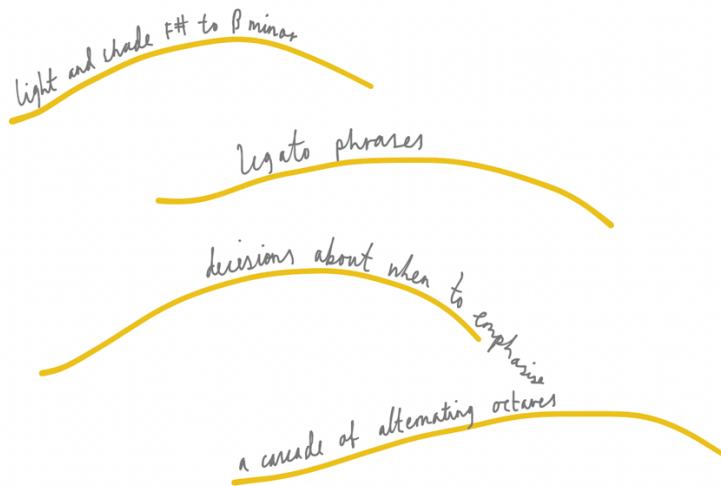 light and shade F# to B minor
legato phrases
decisions about when to emphasise
a cascade of alternating octaves